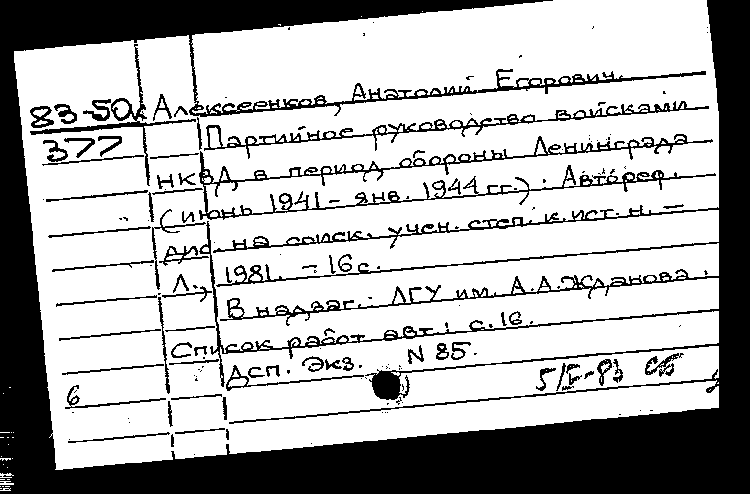 83-50к Алексеенков, Анатолий Егорович.
377 Партийное руководство войсками
НКВД в период обороны Ленинграда
(июнь 1941 - янв. 1944 гг.) : Автореф.
дис. на соиск. учен. степ. к. ист. н. -
Л., 1981. - 16 с.
В надзаг.: ЛГУ им. А.А.Жданова.
Список работ авт.: с. 16.
ДСП. Экз. N 85.
6 5/I-83 СБ